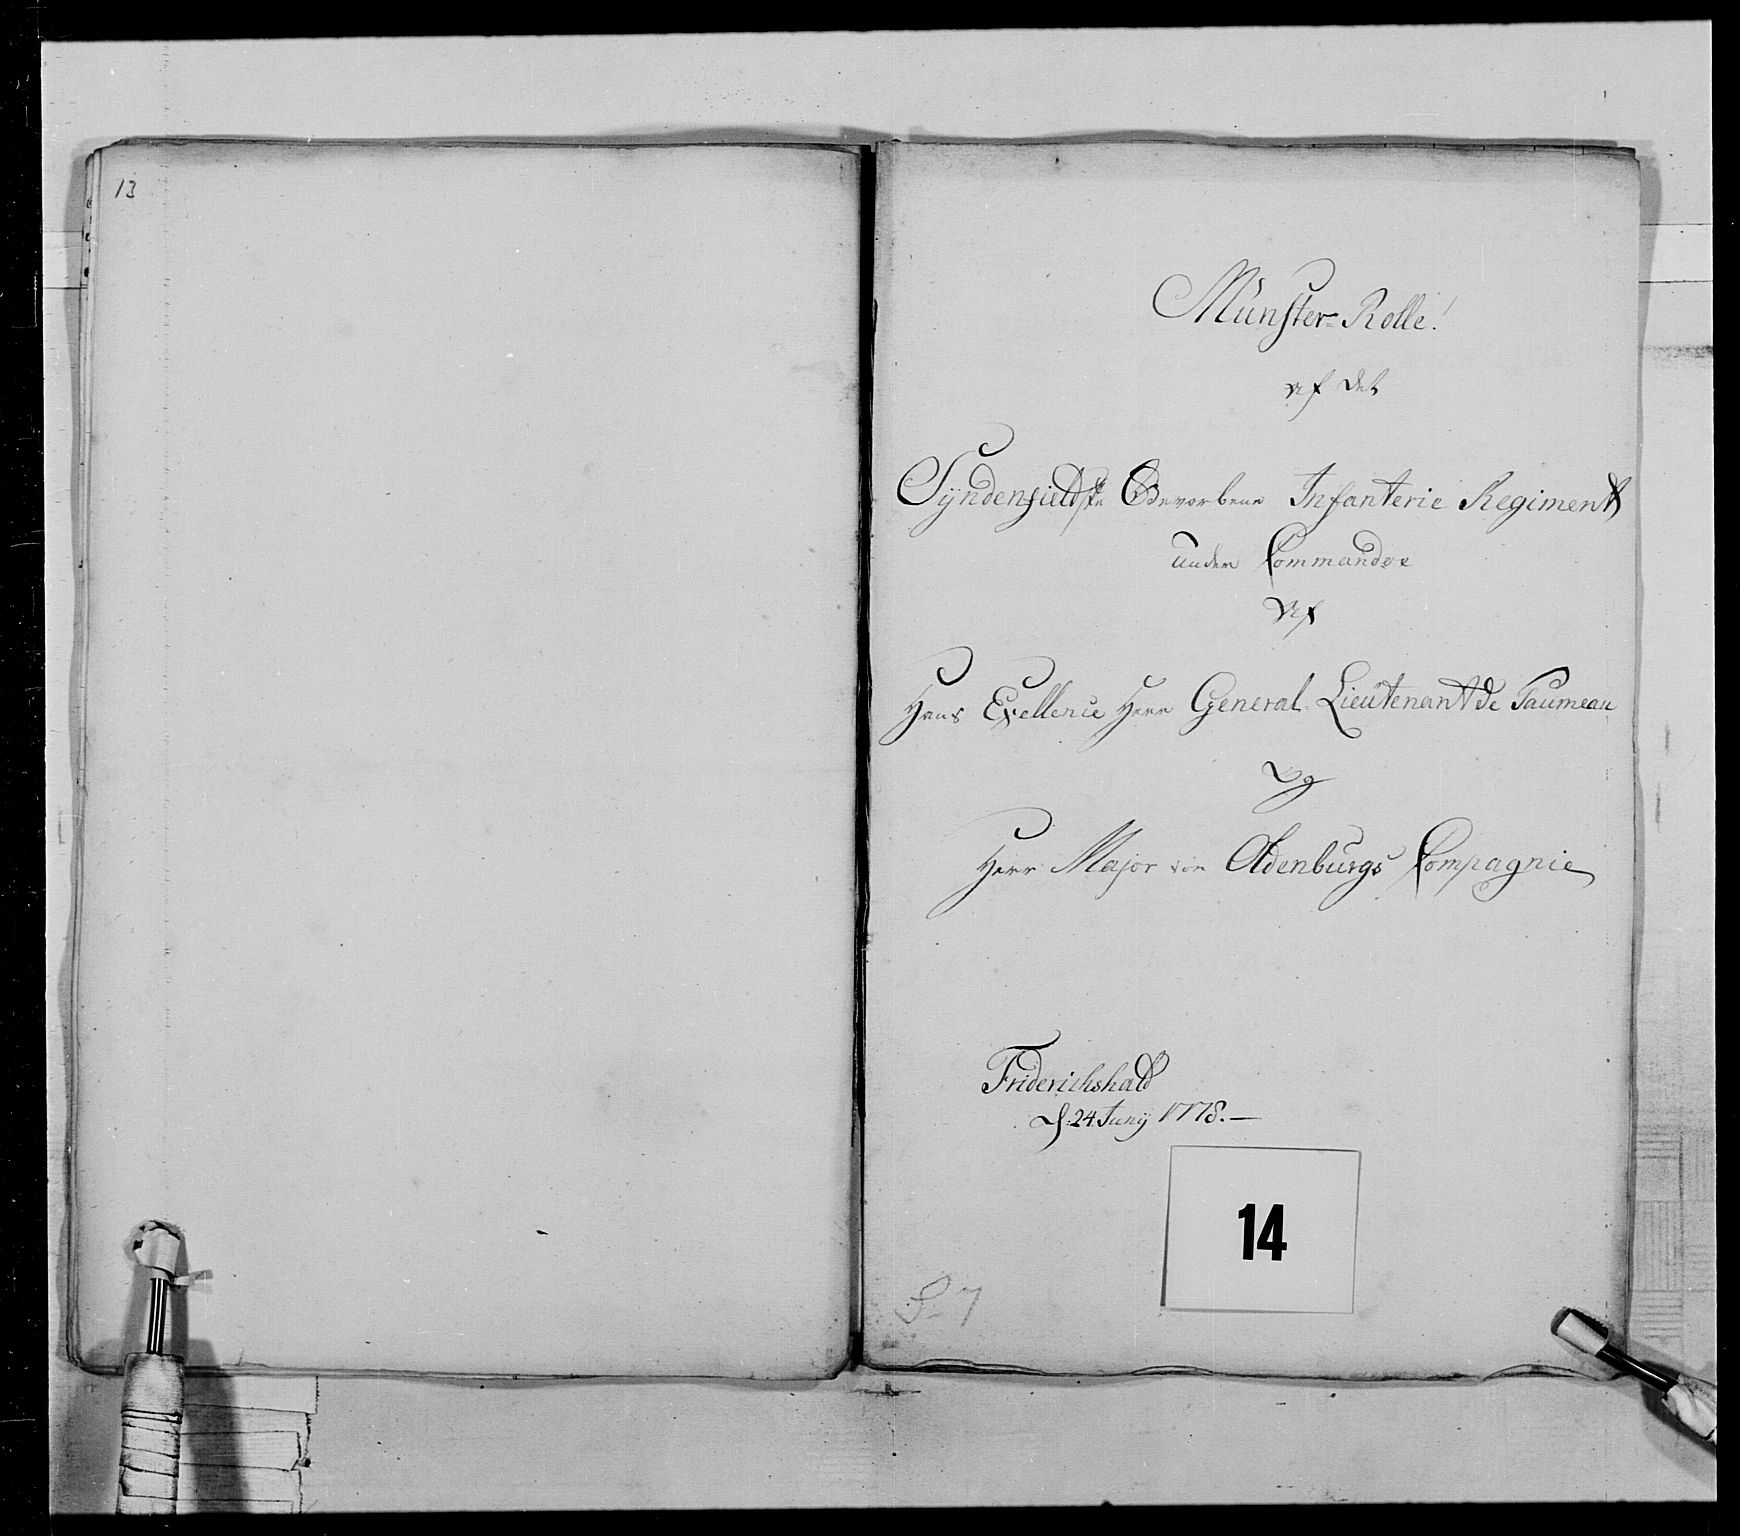 13
Münster-Rolle!
af det
Syndenfieldske Gevorbene Infanterie Regiment
under Commandoe
Af
Hans Exellence Herr General-Lieutenant de Taumeau
Og
Herr Major von Oldenburgs Compagnie
Friderichshald
d: 24. Junÿ 1778.—
14